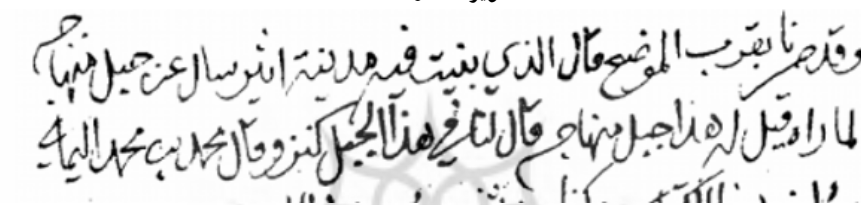 وقد صرنا بقرب الموضع قال الذي بنيت فيه مدينة اثير سال عن جبل منهاجم
لما راه قيل له هذا جبل منهاجم قال لنا في هذا الجبل كنز وقال محمد بن محمد اليماني